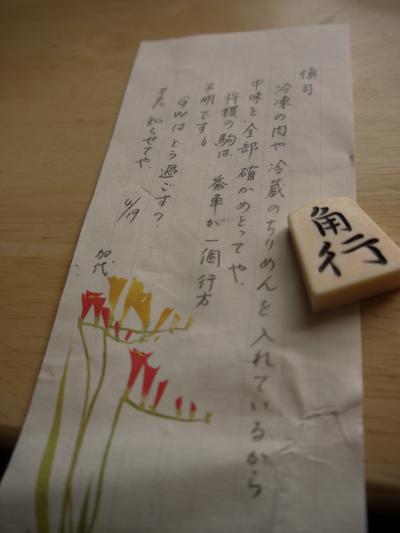 慎司
冷凍の肉や冷蔵のちりめんを入れているから
中味を全部確かめとってや、
将棋の駒は香車が一個行方
不明です。
GWはどう過ごす?
また知らせてや。
4/19
加代
角行